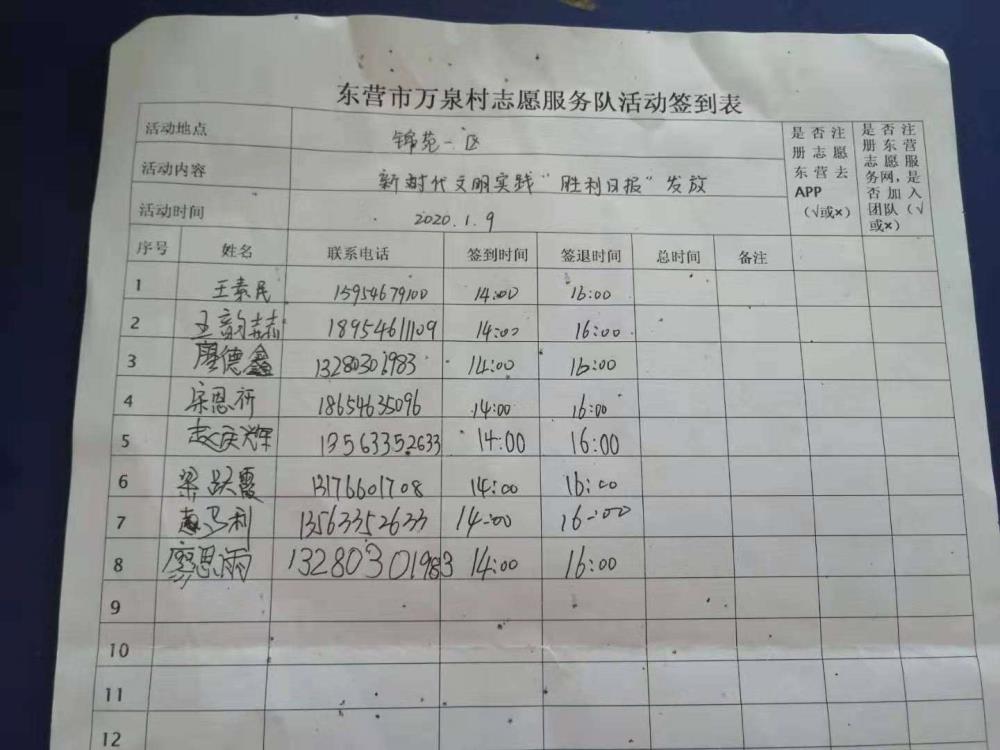 东营市万泉村志愿服务队活动签到表
活动地点 锦苑一区
活动内容 新时代文明实践“胜利日报”发放
活动时间 2020.1.9
是否注册志愿东营去APP（√或×）
是否注册东营志愿服务网，是否加入团队（√或×）
序号 姓名 联系电话 签到时间 签退时间 总时间 备注
1 王素民 15954679100 14:00 16:00
2 王韵喆 18954611109 14:00 16:00
3 廖德鑫 13280301983 14:00 16:00
4 宋恩祈 18654635096 14:00 16:00
5 赵庆辉 13563352633 14:00 16:00
6 梁跃霞 13176601708 14:00 16:00
7 利 13563352633 14:00 16:00
8 廖思雨 13280301983 14:00 16:00
9
10
11
12